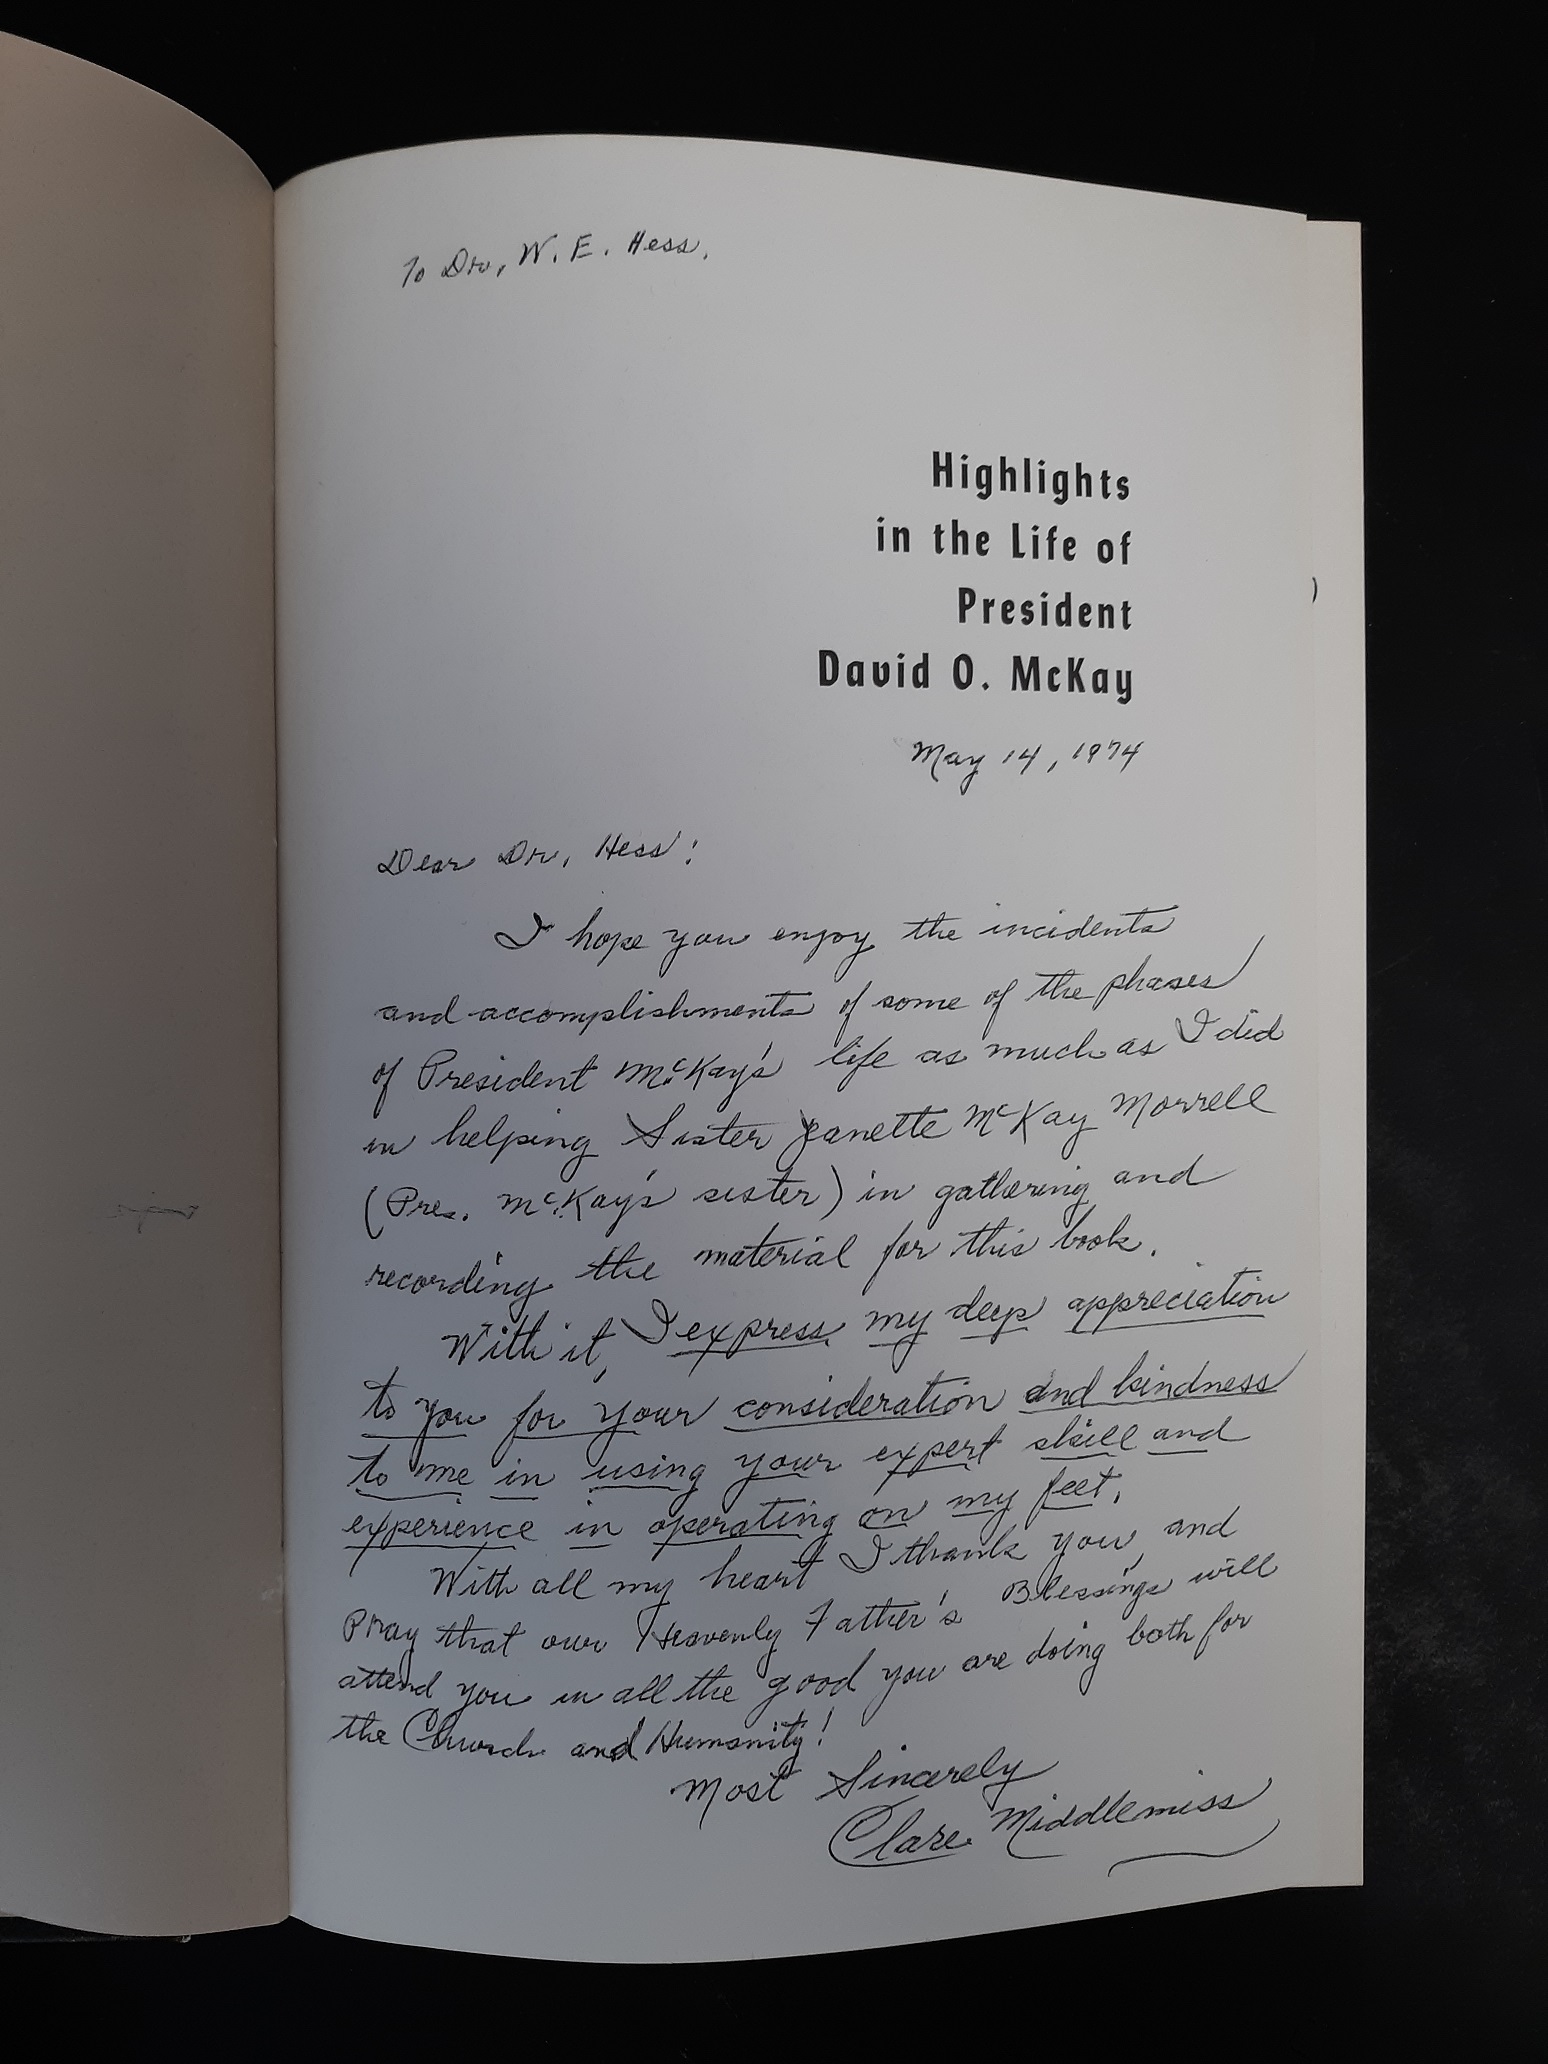 To Dr, W. E. Hess,
Highlights
in the Life of
President
David O. McKay
May 14, 1974
Dear Dr, Hess:
I hope you enjoy the incidents
and accomplishments of some of the phases
of President McKay's life as much as I did
in helping Sister Jeanette McKay Morrell
(Pres. McKay's sister) in gathering and
recording the material for this book.
With it, I express my deep appreciation
to you for your consideration and kindness
to me in using your expert skill and
experience in operating on my feet.
With all my heart I thank you, and
pray that our Heavenly Father's Blessings will
attend you in all the good you are doing both for
the Church and Humanity!
Most Sincerely
Clare Middlemiss